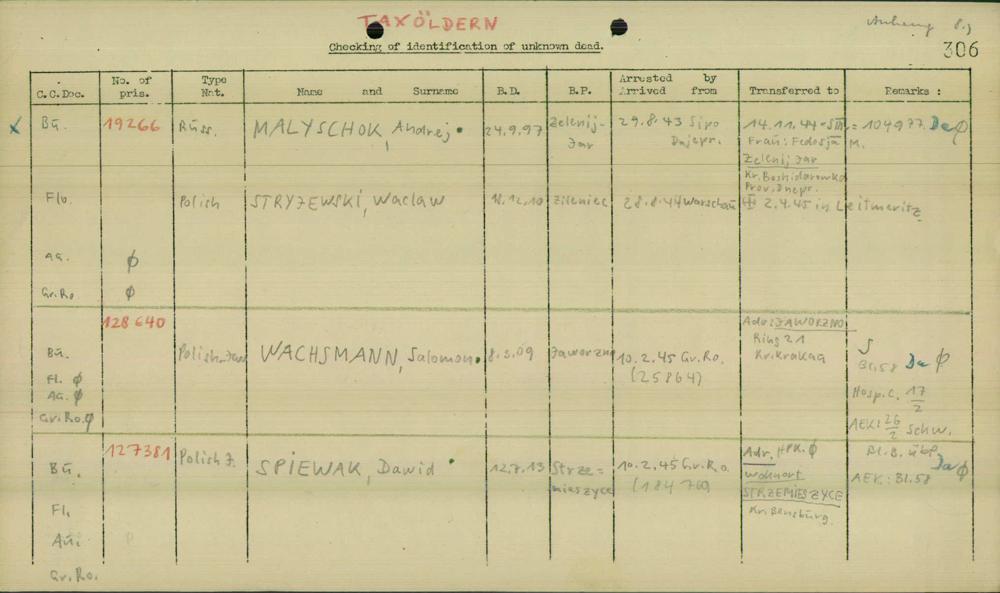 TAXÖLDERN
Anhang 8.)
Checking of identification of unknown dead.
306
C.C.Doc. No. of pris. Type Nat. Name and Surname B.D. B.P. Arrested by Arrived from Transferred to Remarks :
x Bu. 19266 Russ. MALYSCHOK, Andrej • 24.9.97 Zelenij- 29.8.43 Sipo 14.11.44 - SIII = 104977 Da ϕ
Jar Dnjepr. Frau: Fedosja M.
Zelenij Jar
Kr. Boshidarowka
Prov. Dnepr.
Flo. Polish STRYZEWSKI, Waclaw 18.12.10 Zileniec 28.8.44 Warschau 2.4.45 in Leitmeritz
Au. ϕ
Gr.Ro ϕ
128640 Adr: JAWORZNO
Bu. Polish-Jew WACHSMANN, Salomon • 8.3.09 Jaworzno 10.2.45 Gr.Ro. Ring 21
(25864) Kr. Krakau
Bl.58 Da ϕ
Fl. ϕ
AG. ϕ Hosp.C. 17/2
Gr.Ro. ϕ AEK: 26/2 Schw.
127381 Polish J. Adr. HPK. ϕ Bl.B. übp.
Bu. SPIEWAK, Dawid • 12.7.13 Strze= 10.2.45 Gr.Ro. Wohnort Da ϕ
mieszyce (18476) STRZEMIESZYCE AEK: Bl.58
Fl. Kr. Bensburg.
Au.
Gr.Ro.